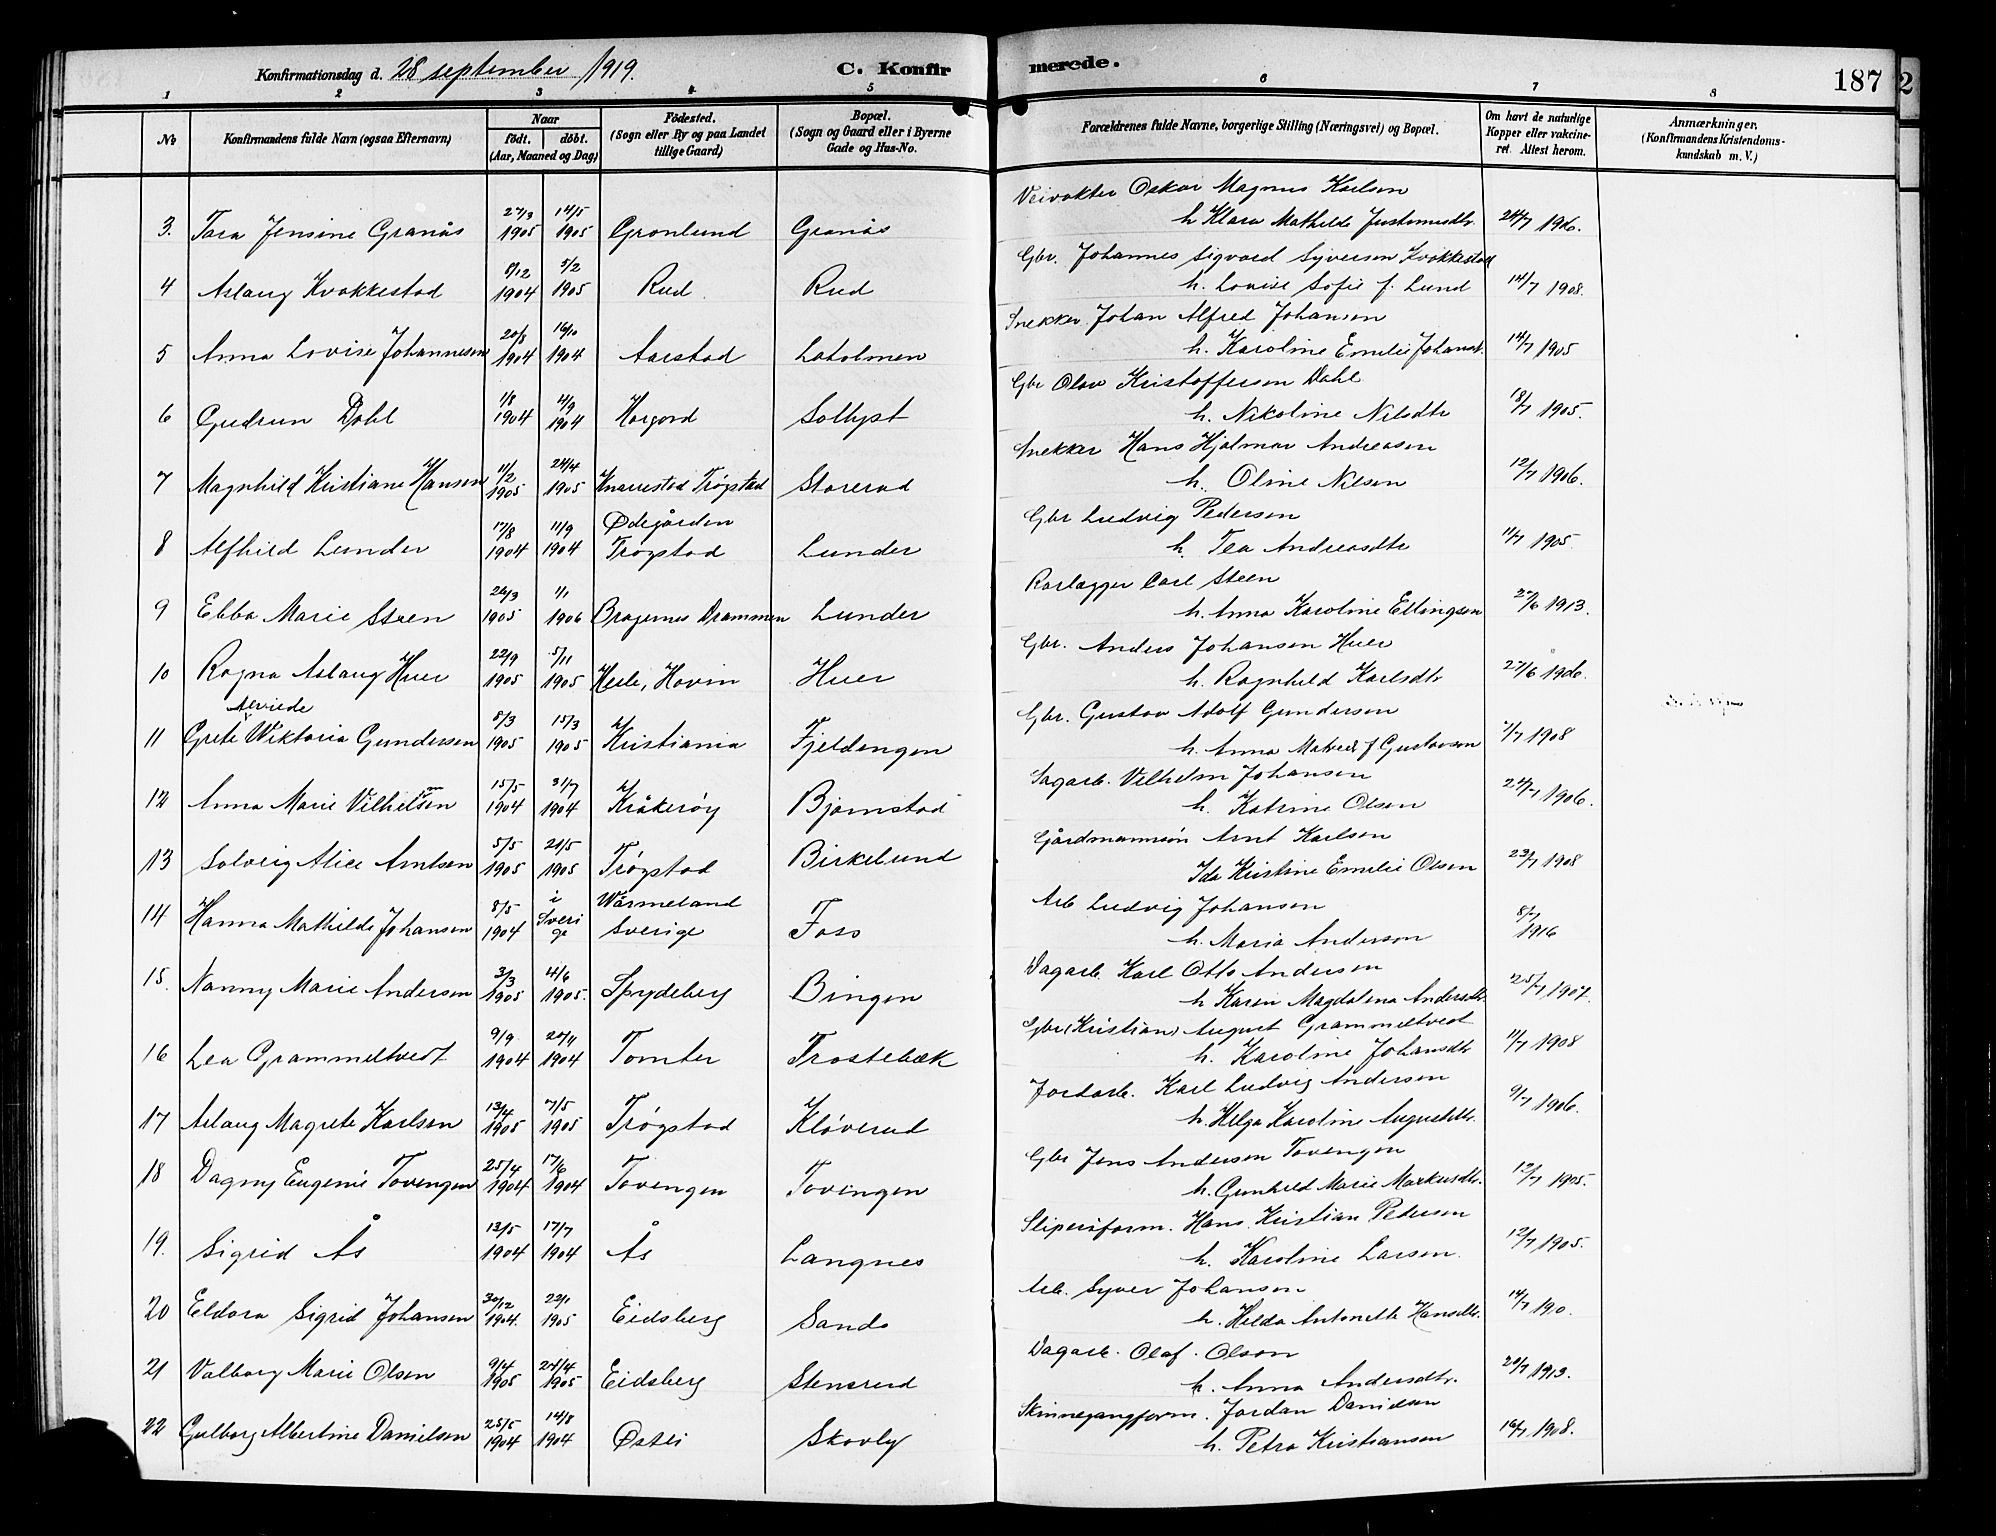 Konfirmationsdag d. 28 september 1919. C. Konfirmerede. 187 2
1 2 3 4 5 6 7 8
No Konfirmandens fulde Navn (ogsaa Efternavn) Naar Fødested. Bopæl. Forældrenes fulde Navne, borgerlige Stilling (Næringsvei) og Bopæl. Om havt de naturlige Anmærkninger.
født. døbt. (Sogn eller By og paa Landet (Sogn og Gaard eller i Byerne Kopper eller vakcine- (Konfirmandens Kristendoms-
(Aar, Maaned og Dag) tillige Gaard) Gade og Hus-No. ret. Attest herom. kundskab m. V.)
Veivokter Oskar Magnus Karlsen
3. Tara Jensine Granås 27/3 1905 14/5 1905 Grønlund Granås h Klara Mathilde Justinusdtr. 24/7 1906.
Gbr. Johannes Sigvard Syversen Kvakkestad
4 Aslaug Kvakkestad 1904 5/2 1905 Rud Rud h. Lovise Sofie f. Lund 14/7 1908.
Snekker Johan Alfred Johansen
5 Anna Lovise Johannesen 20/8 1904 16/10 1904 Aarstad Laholmen h. Karoline Emelie Johansdtr. 14/7 1905
Gbr Olav Kristoffersen Dahl
6 Gudrun Dahl 1/8 1904 4/9 1904 Korgord Solhyst h. Nikoline Nilsdtr 18/7 1905.
Snekker Hans Hjalmar Andreasen
7 Magnhild Kristiane Hansen 11/2 1905 24/4 1905 Knarrestad Trøgstad Storerud h. Oline Nilsen 12/7 1906.
Ødegården Gbr Ludvig Pedersen
8 Alfhild Lunder 17/8 1904 11/9 1904 Trøgstad Lunder h. Tea Andreasdtr 11/7 1905.
Rørlægger Carl Steen
9 Ebba Marie Steen 26/3 1905 1/1 1906 Bragernes Drammen Lunder h. Anna Karoline Ellingsen 1913.
Gbr. Anders Johansen Huer
10 Ragna Aslaug Huer 22/9 1905 5/11 1905 Hesle, Hovin Huer h. Ragnhild Karlsdtr 27/6 1906.
Alvilde Gbr. Gustav Adolf Gundersen
11 Grete Wiktoria Gundersen 8/3 1905 15/3 1905 Kristiania Fjeldengen h. Anna f Gustavsen 7/7 1908
Sagarb. Vilhelm Johansen
12 Anna Marie Vilhelmsen 15/5 1904 31/7 1904 Kråkerøy Bjørnstad h. Katrine Olsen 24/7 1906.
Gårdmannssøn Arnt Karlsen
13 Solveig Alice Arntsen 5/5 1905 21/5 1905 Trøgstad Birkelund Ida Kristine Emelie Olsen 23/7 1908
Arb Ludvig Johansen
14 Hanna Mathilde Johansen 8/5 1904 i Sverige Wärmeland Sverige Foss h. Maria Anderson 8/7 1916
Dagarb. Karl Otto Andersen
15. Nanny Marie Andersen 3/3 1905 4/6 1905. Spydeberg Bingen h Karen Magdalena Andersdtr. 25/7 1907.
Gbr (Kristian) August Grammeltvedt
16 Lea Grammeltvedt 9/9. 1904 20/11 1904 Tomter Trostebæk h. Karoline Johansdtr 11/7 1908
Jordarb. Karl Ludvig Andersen
17 Aslaug Magrete Karlsen 13/4 1905 7/5 1905 Trøgstad Kløverud h. Helga Karoline Augustdtr. 9/7 1906.
Gbr Jens Andersen Tovengen
18 Dagny Eugenie Tovengen 25/4 1904 17/6 1904 Tovengen Tovengen h. Gunhild Marie Markusdtr. 12/7 1905.
Sliperiform. Hans Kristian Pedersen
19. Sigrid Ås 13/5 1904 17/7 1904 Ås Langnes h. Karoline Larsen. 12/7 1905.
Arb. Syver Johansen
20 Eldora Sigrid Johansen 30/12 1904. 22/1 1905 Eidsberg Sando h. Helda Antonette Hansdtr. 14/7 190.
Dagarb. Olaf. Olson
21 Valborg Marie Olsen 9/4 1905 24/4 1905 Eidsberg Stensrud h. Anna Andersdtr. 20/7 1913.
Skinnegangform. Jordan Danielsen
22 Gulborg Albertine Danielsen 25/5 1904 14/8 1904 Østli Skovly h. Petra Kristiansen 16/7 1908.